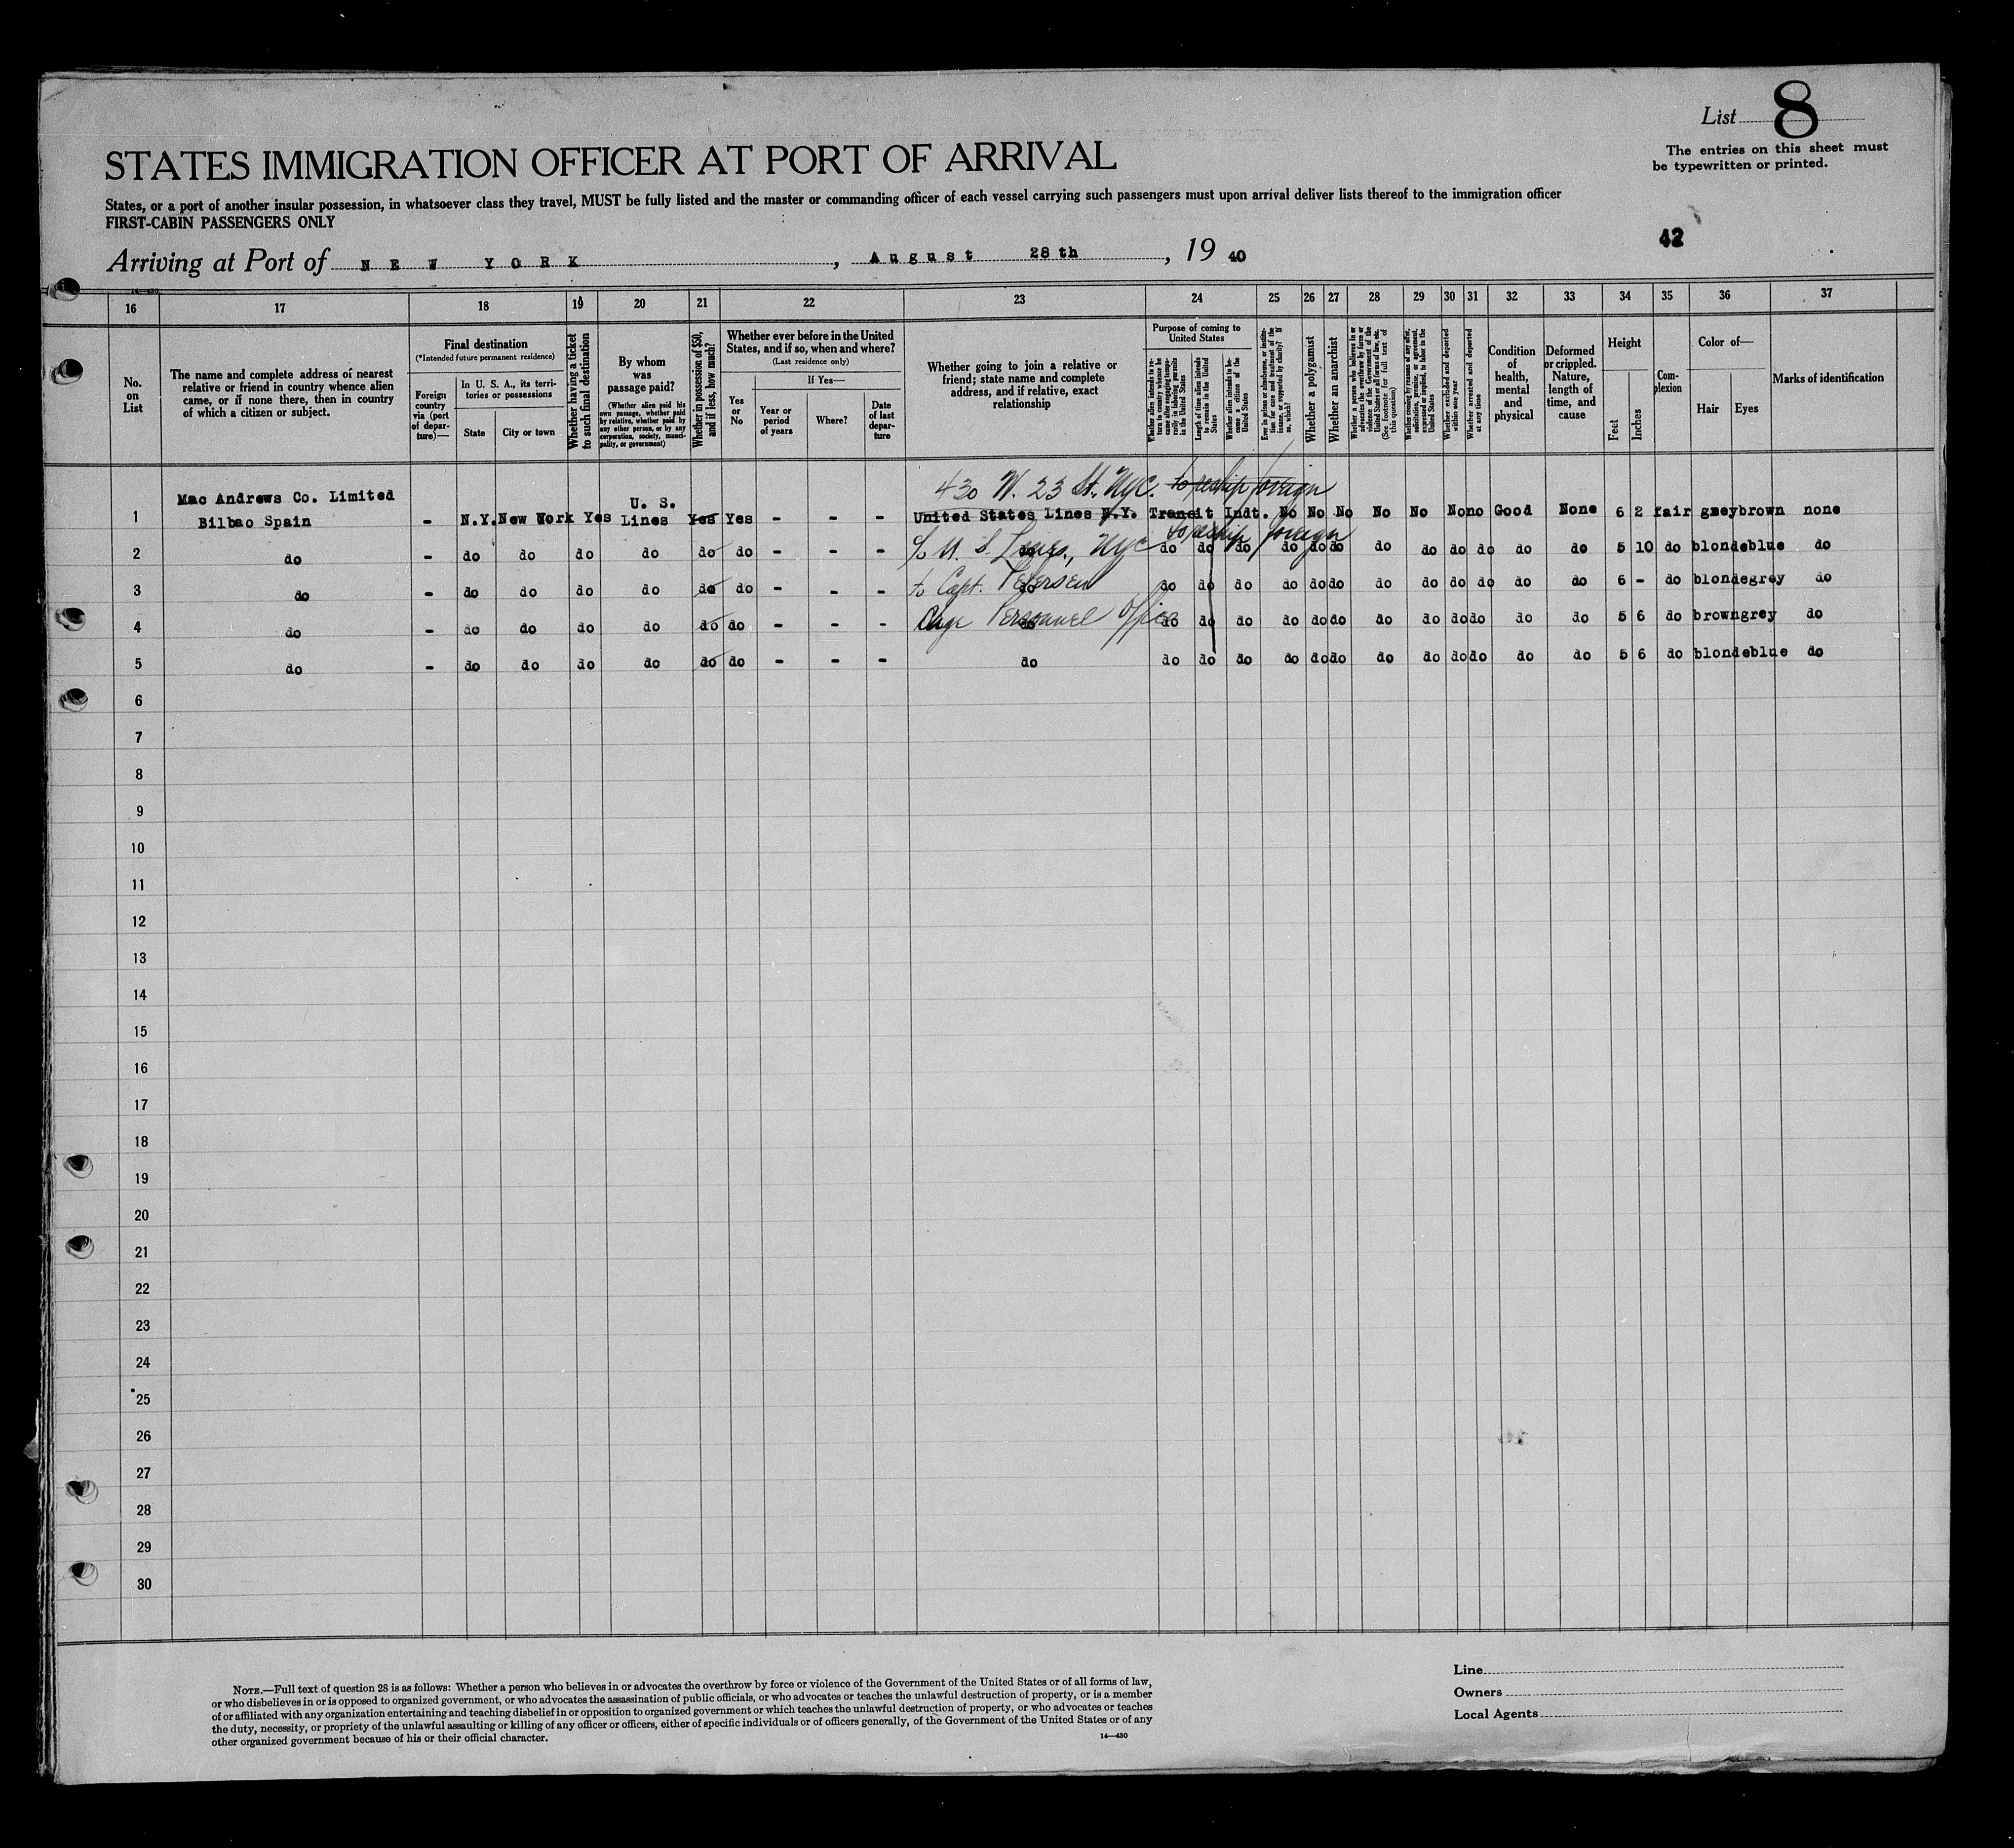 List 8
The entries on this sheet must
be typewritten or printed.
STATES IMMIGRATION OFFICER AT PORT OF ARRIVAL
States, or a port of another insular possession, in whatsoever class they travel, MUST be fully listed and the master or commanding officer of each vessel carrying such passengers must upon arrival deliver lists thereof to the immigration officer
FIRST-CABIN PASSENGERS ONLY
42
Arriving at Port of NEW YORK, August 28th, 19 40
14-430
16 17 18 19 20 21 22 23 24 25 26 27 28 29 30 31 32 33 34 35 36 37
No.
on
List
The name and complete address of nearest
relative or friend in country whence alien
came, or if none there, then in country
of which a citizen or subject.
Final destination
(*Intended future permanent residence)
Foreign
country
via (port
of depar-
ture)—
In U. S. A., its terri-
tories or possessions
State
City or town
Whether having a ticket
to such final destination
By whom
was
passage paid?
(Whether alien paid his
own passage, whether paid
by relative, whether paid by
any other person, or by any
corporation, society, munici-
pality, or government)
Whether in possession of $50,
and if less, how much?
Whether ever before in the United
States, and if so, when and where?
(Last residence only)
Yes
or
No
If Yes—
Year or
period
of years
Where?
Date
of last
depar-
ture
Whether going to join a relative or
friend; state name and complete
address, and if relative, exact
relationship
Purpose of coming to
United States
Whether alien intends to re-
turn to country whence he
came after engaging tempo-
rarily in laboring pursuits
in the United States
Length of time alien intends
to remain in the United
States
Whether alien intends to be-
come a citizen of the
United States
Ever in prison or almshouse, or institu-
tion for care and treatment of the
insane, or supported by charity? If
so, which?
Whether a polygamist
Whether an anarchist
Whether a person who believes in or
advocates the overthrow by force or
violence of the Government of the
United States or all forms of law, etc.
(See footnote for full text of
this question)
Whether coming by reasons of any offer,
solicitation, promise, or agreement,
expressed or implied, to labor in the
United States
Whether excluded and deported
within one year
Whether arrested and deported
at any time
Condition
of
health,
mental
and
physical
Deformed
or crippled.
Nature,
length of
time, and
cause
Height
Feet
Inches
Com-
plexion
Color of—
Hair
Eyes
Marks of identification
430 W. 23 St. NYC. to reship foreign
Mac Andrews Co. Limited U. S.
1 Bilbao Spain - N.Y. New York Yes Lines Yes Yes - - - United States Lines N.Y. Transit Indt. No No No No No No no Good None 6 2 fair grey brown none
to reship foreign
2 do - do do do do do do - - - c/o U. S. Lines, NYC do do do do do do do do do do do do do 5 10 do blonde blue do
3 do - do do do do do do - - - c/o Capt. Petersen do do do do do do do do do do do do do 6 - do blonde grey do
4 do - do do do do do do - - - Personnel Office do do do do do do do do do do do do do 5 6 do brown grey do
5 do - do do do do do do - - - do do do do do do do do do do do do do do 5 6 do blonde blue do
6
7
8
9
10
11
12
13
14
15
16
17
18
19
20
21
22
23
24
25
26
27
28
29
30
NOTE.—Full text of question 28 is as follows: Whether a person who believes in or advocates the overthrow by force or violence of the Government of the United States or of all forms of law,
or who disbelieves in or is opposed to organized government, or who advocates the assassination of public officials, or who advocates or teaches the unlawful destruction of property, or is a member
of or affiliated with any organization entertaining and teaching disbelief in or opposition to organized government or which teaches the unlawful destruction of property, or who advocates or teaches
the duty, necessity, or propriety of the unlawful assaulting or killing of any officer or officers, either of specific individuals or of officers generally, of the Government of the United States or of any
other organized government because of his or their official character.
14—430
Line
Owners
Local Agents